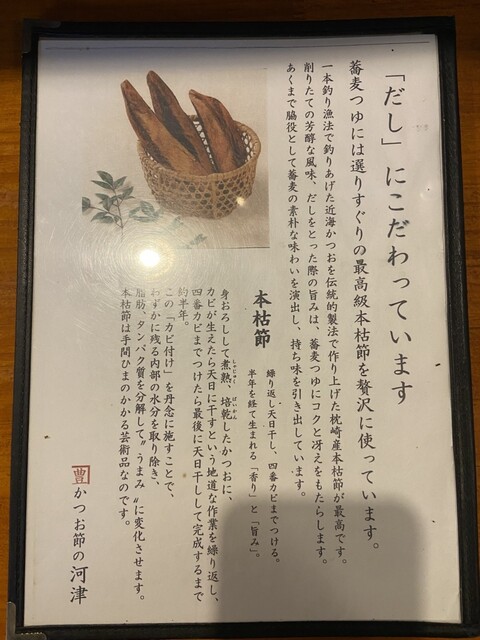 「だし」にこだわっています
蕎麦つゆには選りすぐりの最高級本枯節を贅沢に使っています。
一本釣り漁法で釣りあげた近海かつおを伝統的製法で作り上げた枕崎産本枯節が最高です。
削りたての芳醇な風味、だしをとった際の旨みは、蕎麦つゆにコクと冴えをもたらします。
あくまで脇役として蕎麦の素朴な味わいを演出し、持ち味を引き出しています。
本枯節
繰り返し天日干し、四番カビまでつける。
半年を経て生まれる「香り」と「旨み」。
身おろしして煮熟、培乾したかつおに、
カビが生えたら天日に干すという地道な作業を繰り返し、
四番カビまでつけたら最後に天日干しして完成するまで
約半年。
この「カビ付け」を丹念に施すことで、
わずかに残る内部の水分を取り除き、
脂肪、タンパク質を分解して〝うまみ〟に変化させます。
本枯節は手間ひまのかかる芸術品なのです。
豊 かつお節の河津